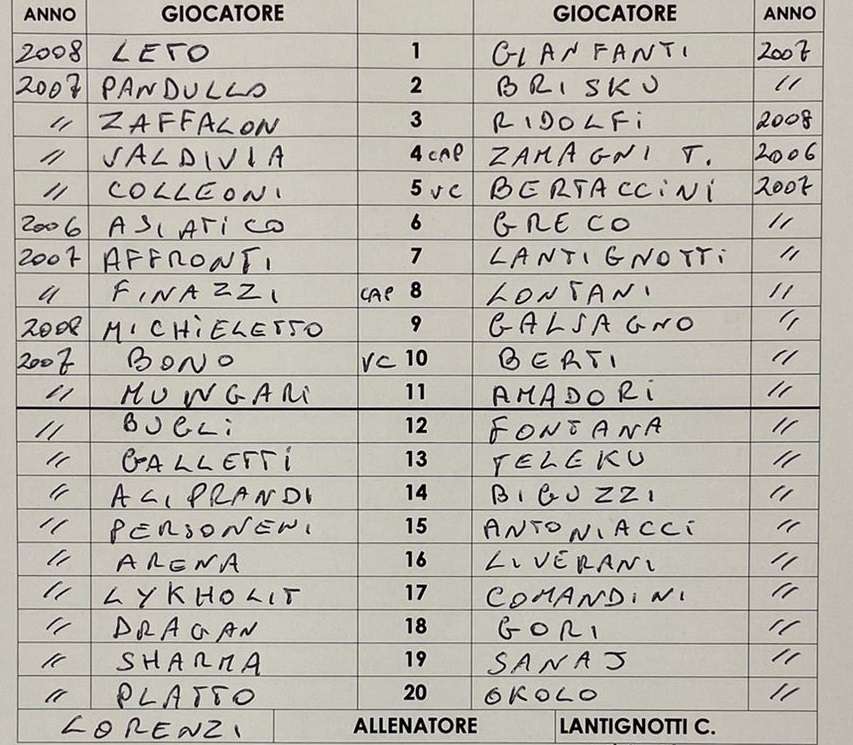 ANNO GIOCATORE GIOCATORE ANNO
2008 LETO 1 GIANFANTI 2007
2007 PANDULLO 2 BRISKU //
// ZAFFALON 3 RIDOLFi 2008
// VALDIVIA 4 CAP ZAMAGNI T. 2006
// COLLEONI 5 VC BERTACCiNi 2007
2006 ASIATiCO 6 GRECO //
2007 AFFRONTI 7 LANTIGNOTTi //
// FINAZZI CAP 8 LONTANI //
2008 MICHiELETTO 9 GALSAGNO //
2007 BONO VC 10 BERTI //
// MUNGARi 11 AMADORi //
// BUGLi 12 FONTANA //
// GALLETTi 13 TELEKU //
// ALIPRANDI 14 BIGUZZI //
// PERSONENI 15 ANTONIACCi //
// ARENA 16 LIVERANI //
// LYKHOLIT 17 COMANDINI //
// DRAGAN 18 GORI //
// SHARMA 19 SANAJ //
// PLATTO 20 OKOLO //
LORENZI ALLENATORE LANTIGNOTTI C.